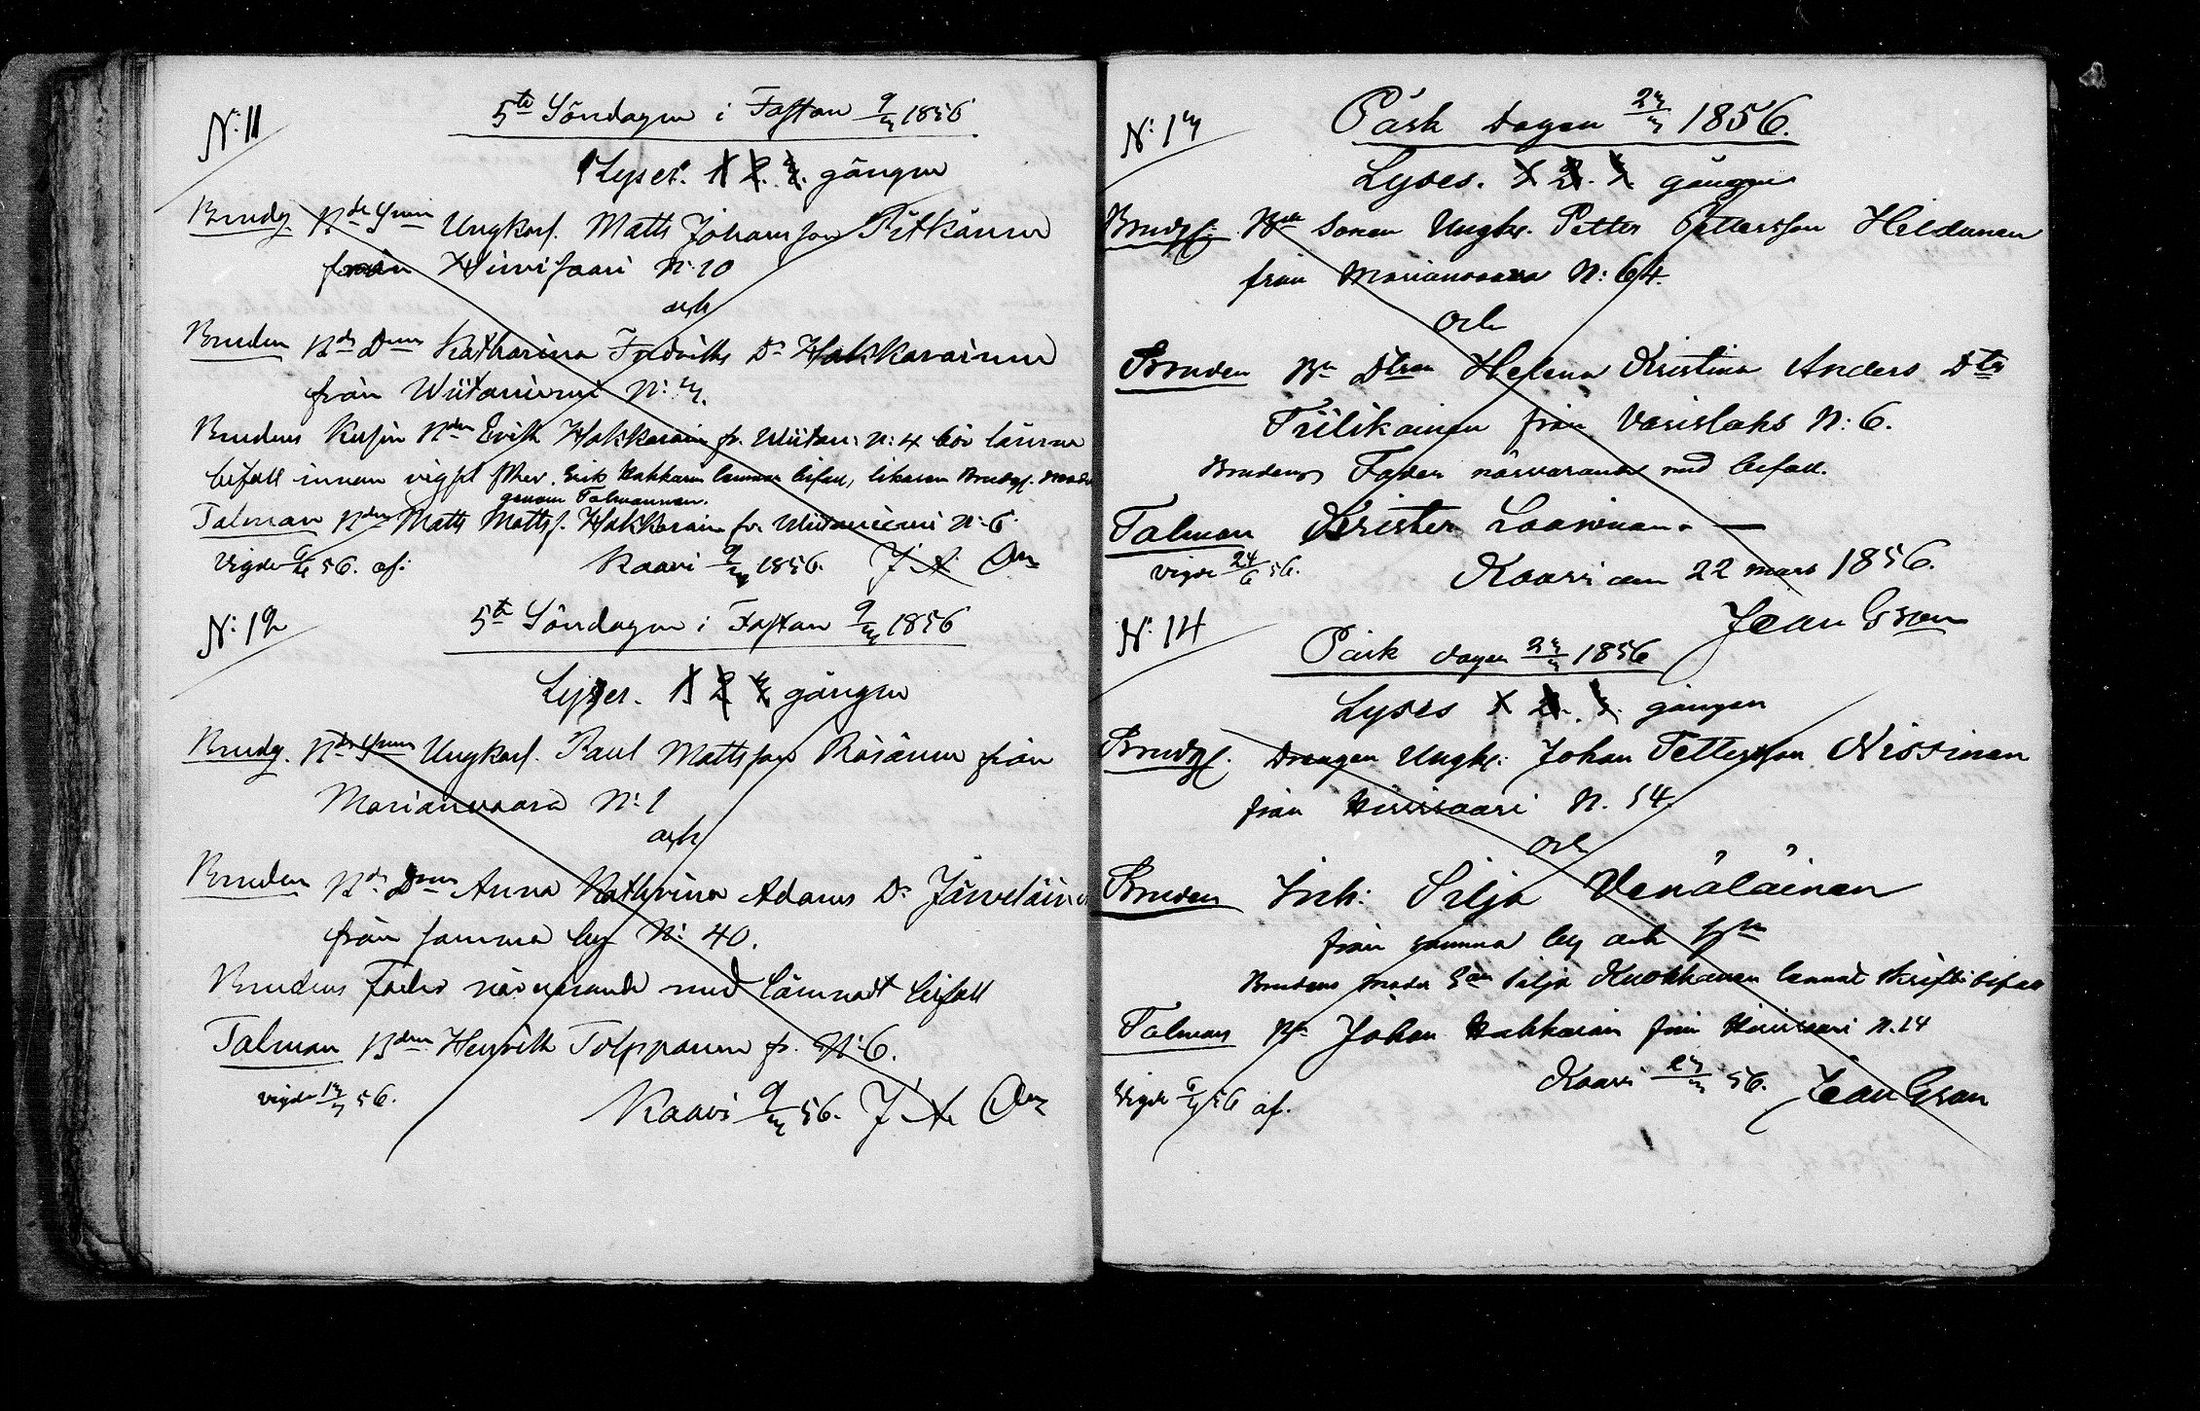 N:11
5te Söndagen i Fastan 9/3 1856
Lyses. 1 2. 3. gången
Brudg. Bde Snn Ungkarl. Matts Johansson Pitkänen
från Hirvisaari N:10
och
Bruden Bde Dnn Katharina Fredriks Dr Hakkarainen
från Wiitaniemi N:3.
Brudens Kusin Bden Erik Hakkarain fr. Wiitani: N:4 bör lämna
bifall innan vigsel sker. Erik Hakkarain lemnar bifall, likasom Brudg.
genom Talmannen.
Talman Bden Matts Mattss. Hakkarain fr Wiitaniemi N:6.
Vigde 56. af:
Kaavi 9/3 1856. J. A.
N:12
5te Söndagen i Fastan 9/3 1856
Lyses. 1 2 3 gången
Brudg. Bde Snn Ungkarl. Paul Mattsson Räsänen från
Marianvaara N:1
och
Bruden Bde Dnn Anna Kathrina Adams Dr Järveläinen
från samma by N: 40.
Brudens Fader närvarande med lämnadt bifall
Talman Bden Henrik Tolppanen fr. N:6.
vigde 56.
Kaavi 9/3 56. J. A.
N:13
Påsk dagen 23/3 1856.
Lyses. 1 2. 3. gången
Brudg. Bde Sonen Ungk. Petter Pettersson Heldunen
från Marianvaara N:64.
och
Bruden Bn Dtren Helena Kristina Anders Dtr
Tiilikainen från Varislaks N:6.
Brudens Fader närvarande med bifall.
Talman Krister Laavinan. —
vigde 24/6 56.
Kaavi den 22 mars 1856.
Jean Gran
N:14
Påsk dagen 23/3 1856
Lyses 1 2. 3. gången
Brudg. Drengen Ungk: Johan Pettersson Nissinen
från Hirvisaari N. 54.
och
Bruden Inh: Silja Venäläinen
från samma by och
Brudens moder Silja Kuokkanen lemnat skriftl: bifall
Talman Bn Johan Hakkarain från Hirvisaari N.14
Kaavi 23/3 56. Jean Gran
Vigde 56 af.